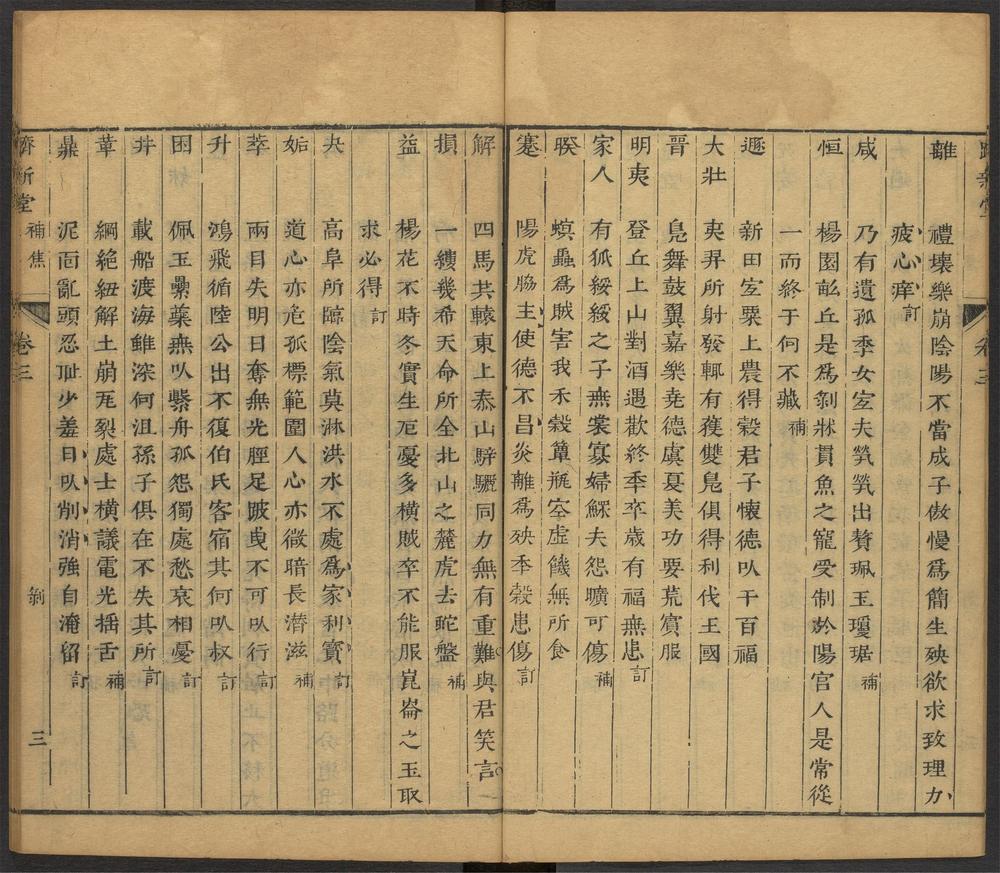 離 禮壞樂崩陰陽不當成子傲慢爲簡生殃欲求致理力
疲心痒訂
咸 乃有遺孤季女室夫煢煢出贅珮玉瓊琚補
恒 楊園畝丘是爲剝牀貫魚之寵受制於陽官人是常從
一而終于何不藏補
遯 新田宜粟上農得穀君子懷德以干百福
大壯 夷羿所射發輒有獲雙鳧俱得利伐王國
晉 鳧舞鼓翼嘉樂堯德虞夏美功要荒賓服
明夷 登丘上山對酒遇歡終季卒歲有福無患訂
家人 有狐綏綏之子無裳寡婦鰥夫怨曠可傷補
睽 螟蟲爲賊害我禾穀簞瓶空虛饑無所食
蹇 陽虎脇主使德不昌炎離爲殃季穀患傷訂
解 四馬共轅東上泰山騂驪同力無有重難與君笑言
損 一縷幾希天命所全北山之麓虎去蛇盤補
益 楊花不時冬實生危憂多橫賊卒不能服崑崙之玉取
求必得訂
夬 高阜所臨陰氣莫淋洪水不處爲家利寶訂
姤 道心亦危孤標範圍人心亦微暗長潛滋補
萃 兩目失明日奪無光脛足跛曳不可以行訂
升 鴻飛循陸公出不復伯氏客宿其何以权訂
困 佩玉櫐蘂無以繫舟孤怨獨處愁哀相憂訂
井 載船渡海雖深何沮孫子俱在不失其所訂
革 綱絶紐解土崩瓦裂處士橫議電光捂舌補
鼎 泥面亂頭忍恥少羞日以削消強自淹留訂
濟新堂 補焦 卷三 剝 三